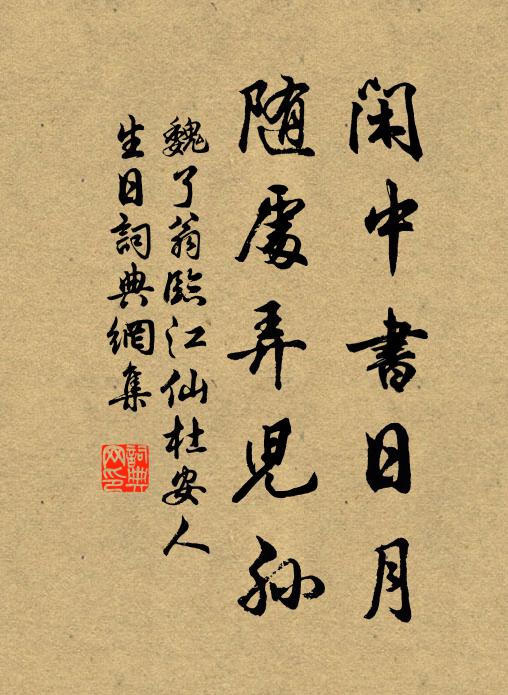 閑中書日月
随處弄兒孫
魏了翁臨江仙杜安人
生日詞典網集
詞典网印